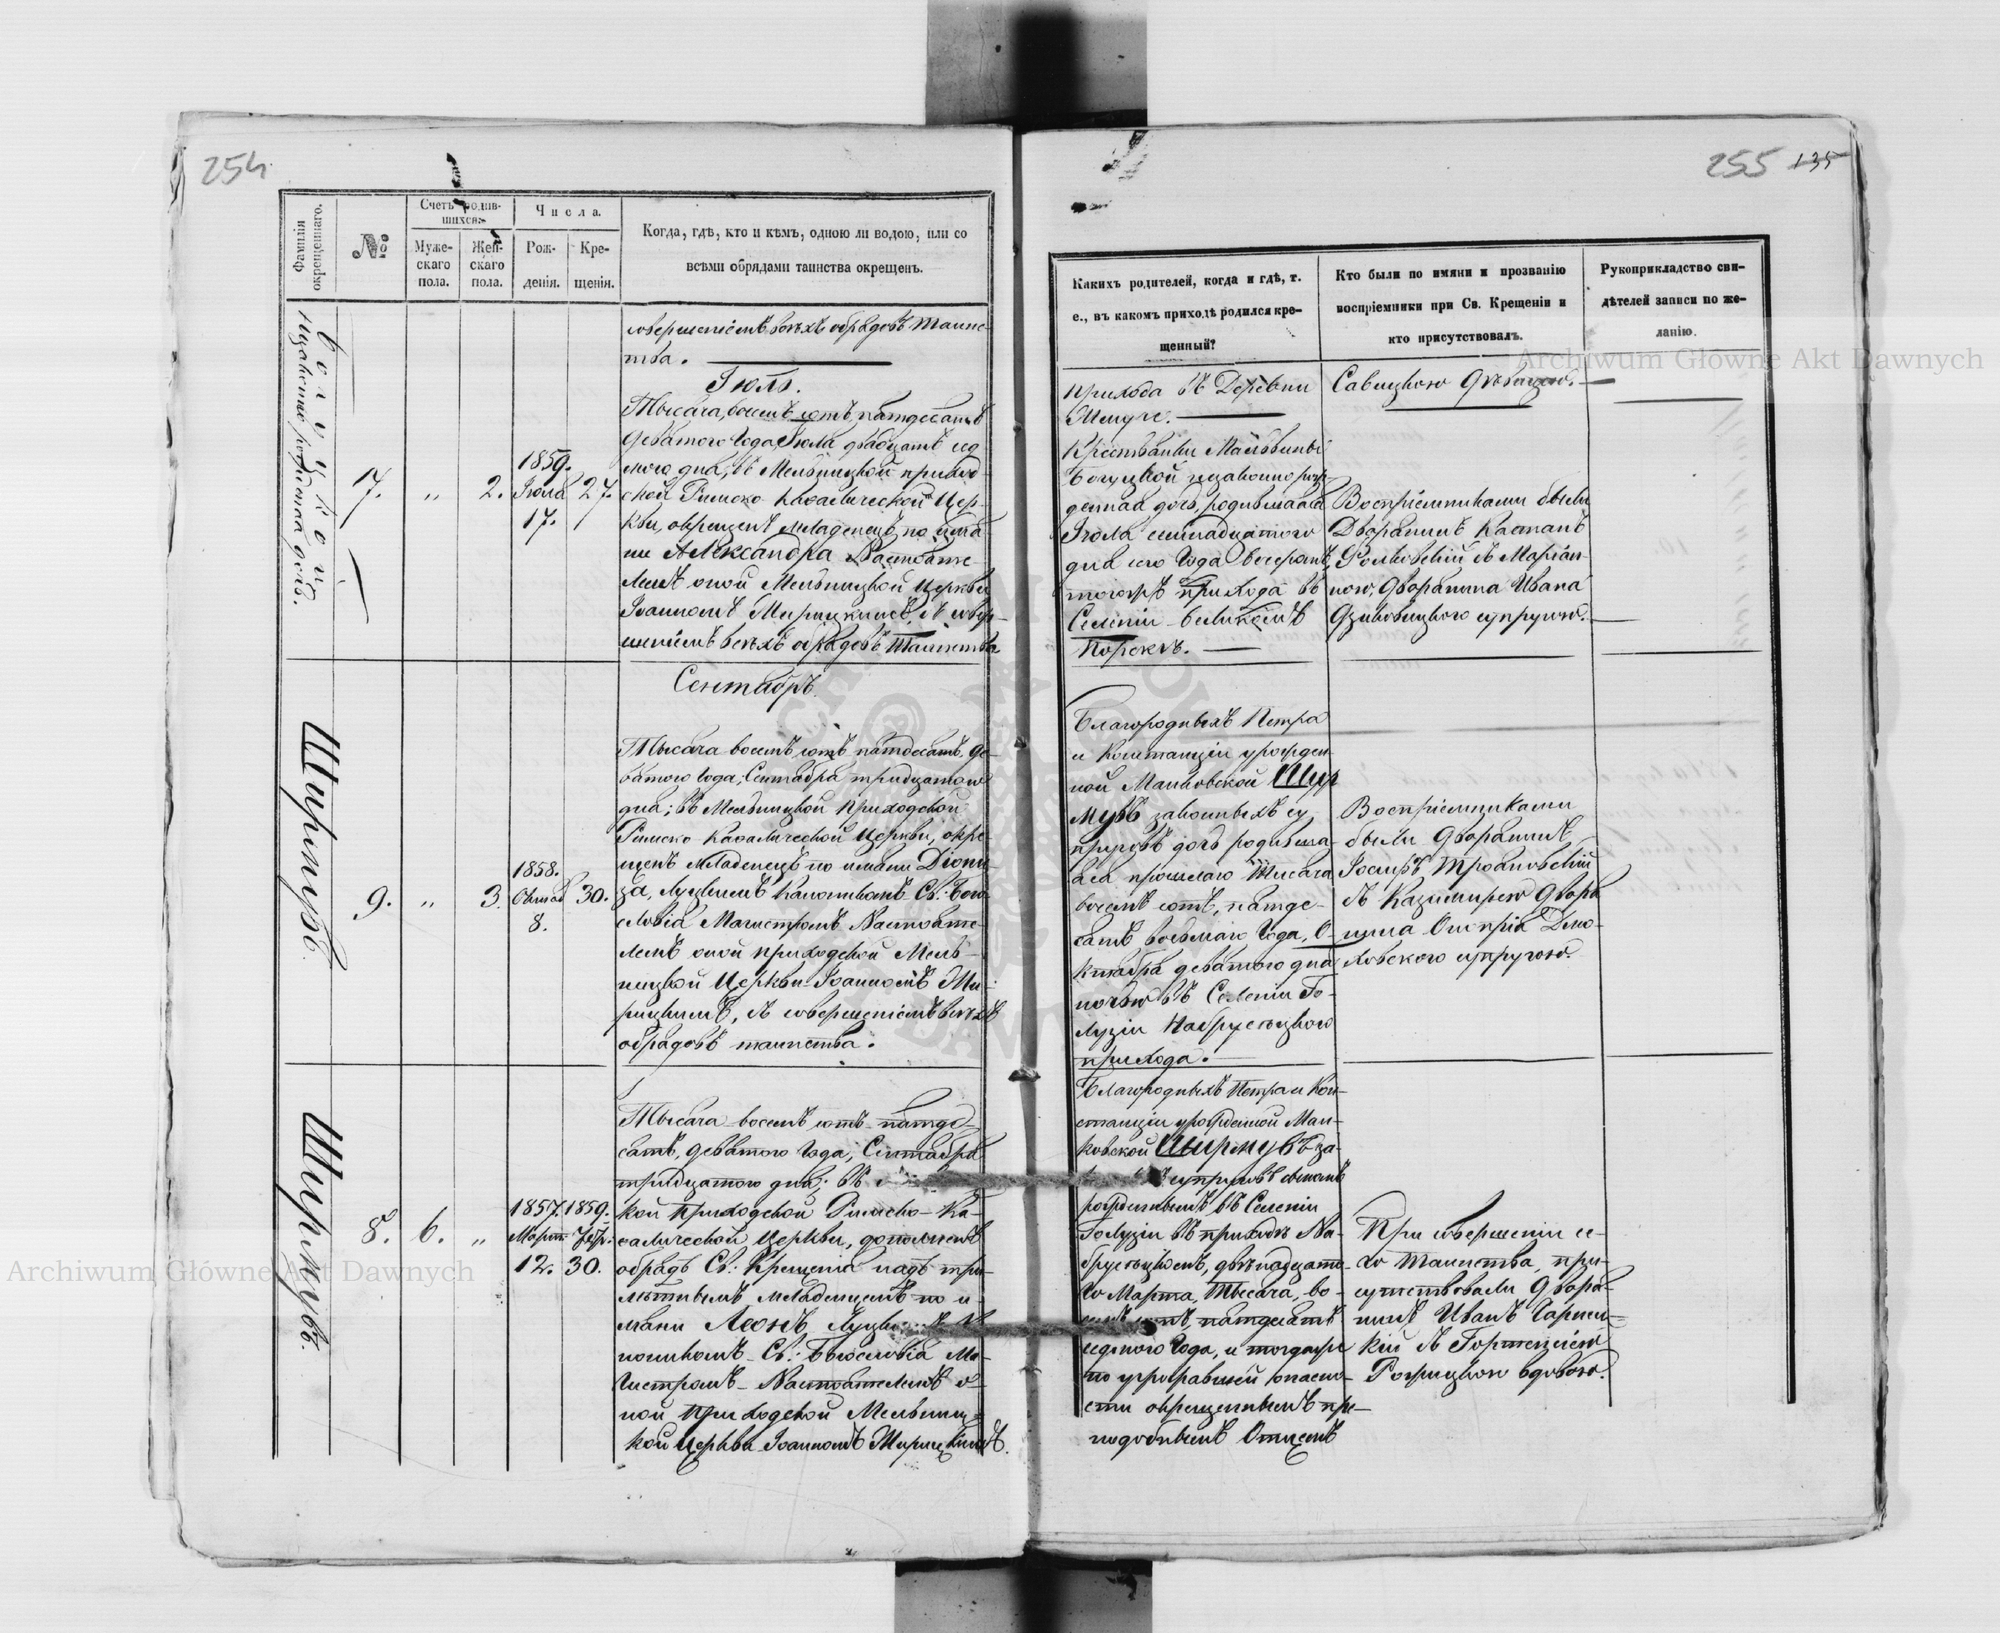 254
255 135
Фамилія окрещеннаго.
№
Счетъ родив-
шихся.
Муже-
скаго
пола.
Жен-
скаго
пола.
Числа.
Рож-
денія.
Кре-
щенія.
Когда, гдѣ, кто и кѣмъ, одною ли водою, или со
всѣми обрядами таинства окрещенъ.
совершеніемъ всѣхъ обрядовъ Таинс-
тва.
Іюль.
незаконно рожденная дочь.
7.
„
2.
1859.
Іюля
17.
27.
Тысяча восемь сотъ пятьдесятъ
девятого Года, Іюля двадцать сед
мого дня, въ Мельницкой приход-
ской Римско Каѳолической Цер-
кви, окрещенъ младенецъ по имя
ни Александра Настояте
лемъ оной Мельницкой Церкви
Іоанномъ съ совер-
шеніемъ всѣхъ обрядовъ Таинства
Сентябрь.
Ширмувъ.
9.
„
3.
1858.
Октяб
8.
30.
Тысяча восемь сотъ пятьдесятъ де-
вятого Года, Сентября тридцатого
дня; въ Мельницкой Приходской
Римско Каѳолической Церкви, окре
щенъ Младенецъ по имяни Діони
за, Луцкимъ Каноникомъ Св: Бого
словія Магистромъ Настояте-
лемъ оной Приходской Мель-
ницкой Церкви Іоанномъ
съ совершеніемъ всѣхъ
обрядовъ таинства.
Ширмувъ.
8.
6.
„
1857.
Март.
12.
1859.
30.
Тысяча восемь сотъ пятьде-
сятъ девятого Года, Сентября
тридцатого дня; въ
кой Приходской Римско-Ка-
ѳолической Церкви, дополненъ
обрядъ Св: Крещенія надъ
младенцемъ по и-
мяни Леонъ
нонникомъ Св: Богословія Ма-
гистромъ Настоятелемъ о-
ной Приходской Мельниц-
кой Церкви Іоанномъ
Какихъ родителей, когда и гдѣ, т.
е., въ какомъ приходѣ родился кре-
щенный?
Кто были по имяни и прозванію
воспріемники при Св. Крещеніи и
кто присутствовалъ.
Рукоприкладство сви-
дѣтелей записи по же-
ланію.
прихода въ Деревни
Савицкою Дѣвицею.
Крестьянки Мальвины
незаконно рож
денная дочь, родившаяся
Іюля семнадцатого
дня сего Года
прихода въ
Селеніи Великомъ
Порскѣ.
Воспріемниками были
Дворянинъ
съ Маріан-
ною, Дворянина Ивана
супругою.
Благородныхъ Петра
и Констанціи урожден
ной Маньковской Шир
мувъ законныхъ су
пруговъ дочь родивша
яся прошлаго Тысяча
восемь сотъ пятьде-
сятъ восьмаго Года, О-
ктября девятого дня
ночью въ Селеніи Го-
лузіи Набружскаго
прихода.
Воспріемниками
были Дворянинъ
Іосифъ Трояновскій
съ Казимирою Дворя
нина Онуфрія
супругою.
Благородныхъ Петра и Кон-
станціи урожденной Мань-
ковской Ширмувъ за-
супруговъ сыномъ
рожденнымъ въ Селеніи
Голузіи въ приходѣ На-
двѣнадцато-
го Марта, Тысяча, во-
семь сотъ, пятьдесятъ
седмого Года, и тогдаже
по угрожавшей опасно-
сти окрещеннымъ пре-
подобнымъ Отцемъ
При совершеніи се-
го Таинства, при-
сутствовали Дворя-
нинъ Иванъ
съ Гортензіею
вдовою.
Archiwum Główne Akt Dawnych
Archiwum Główne Akt Dawnych